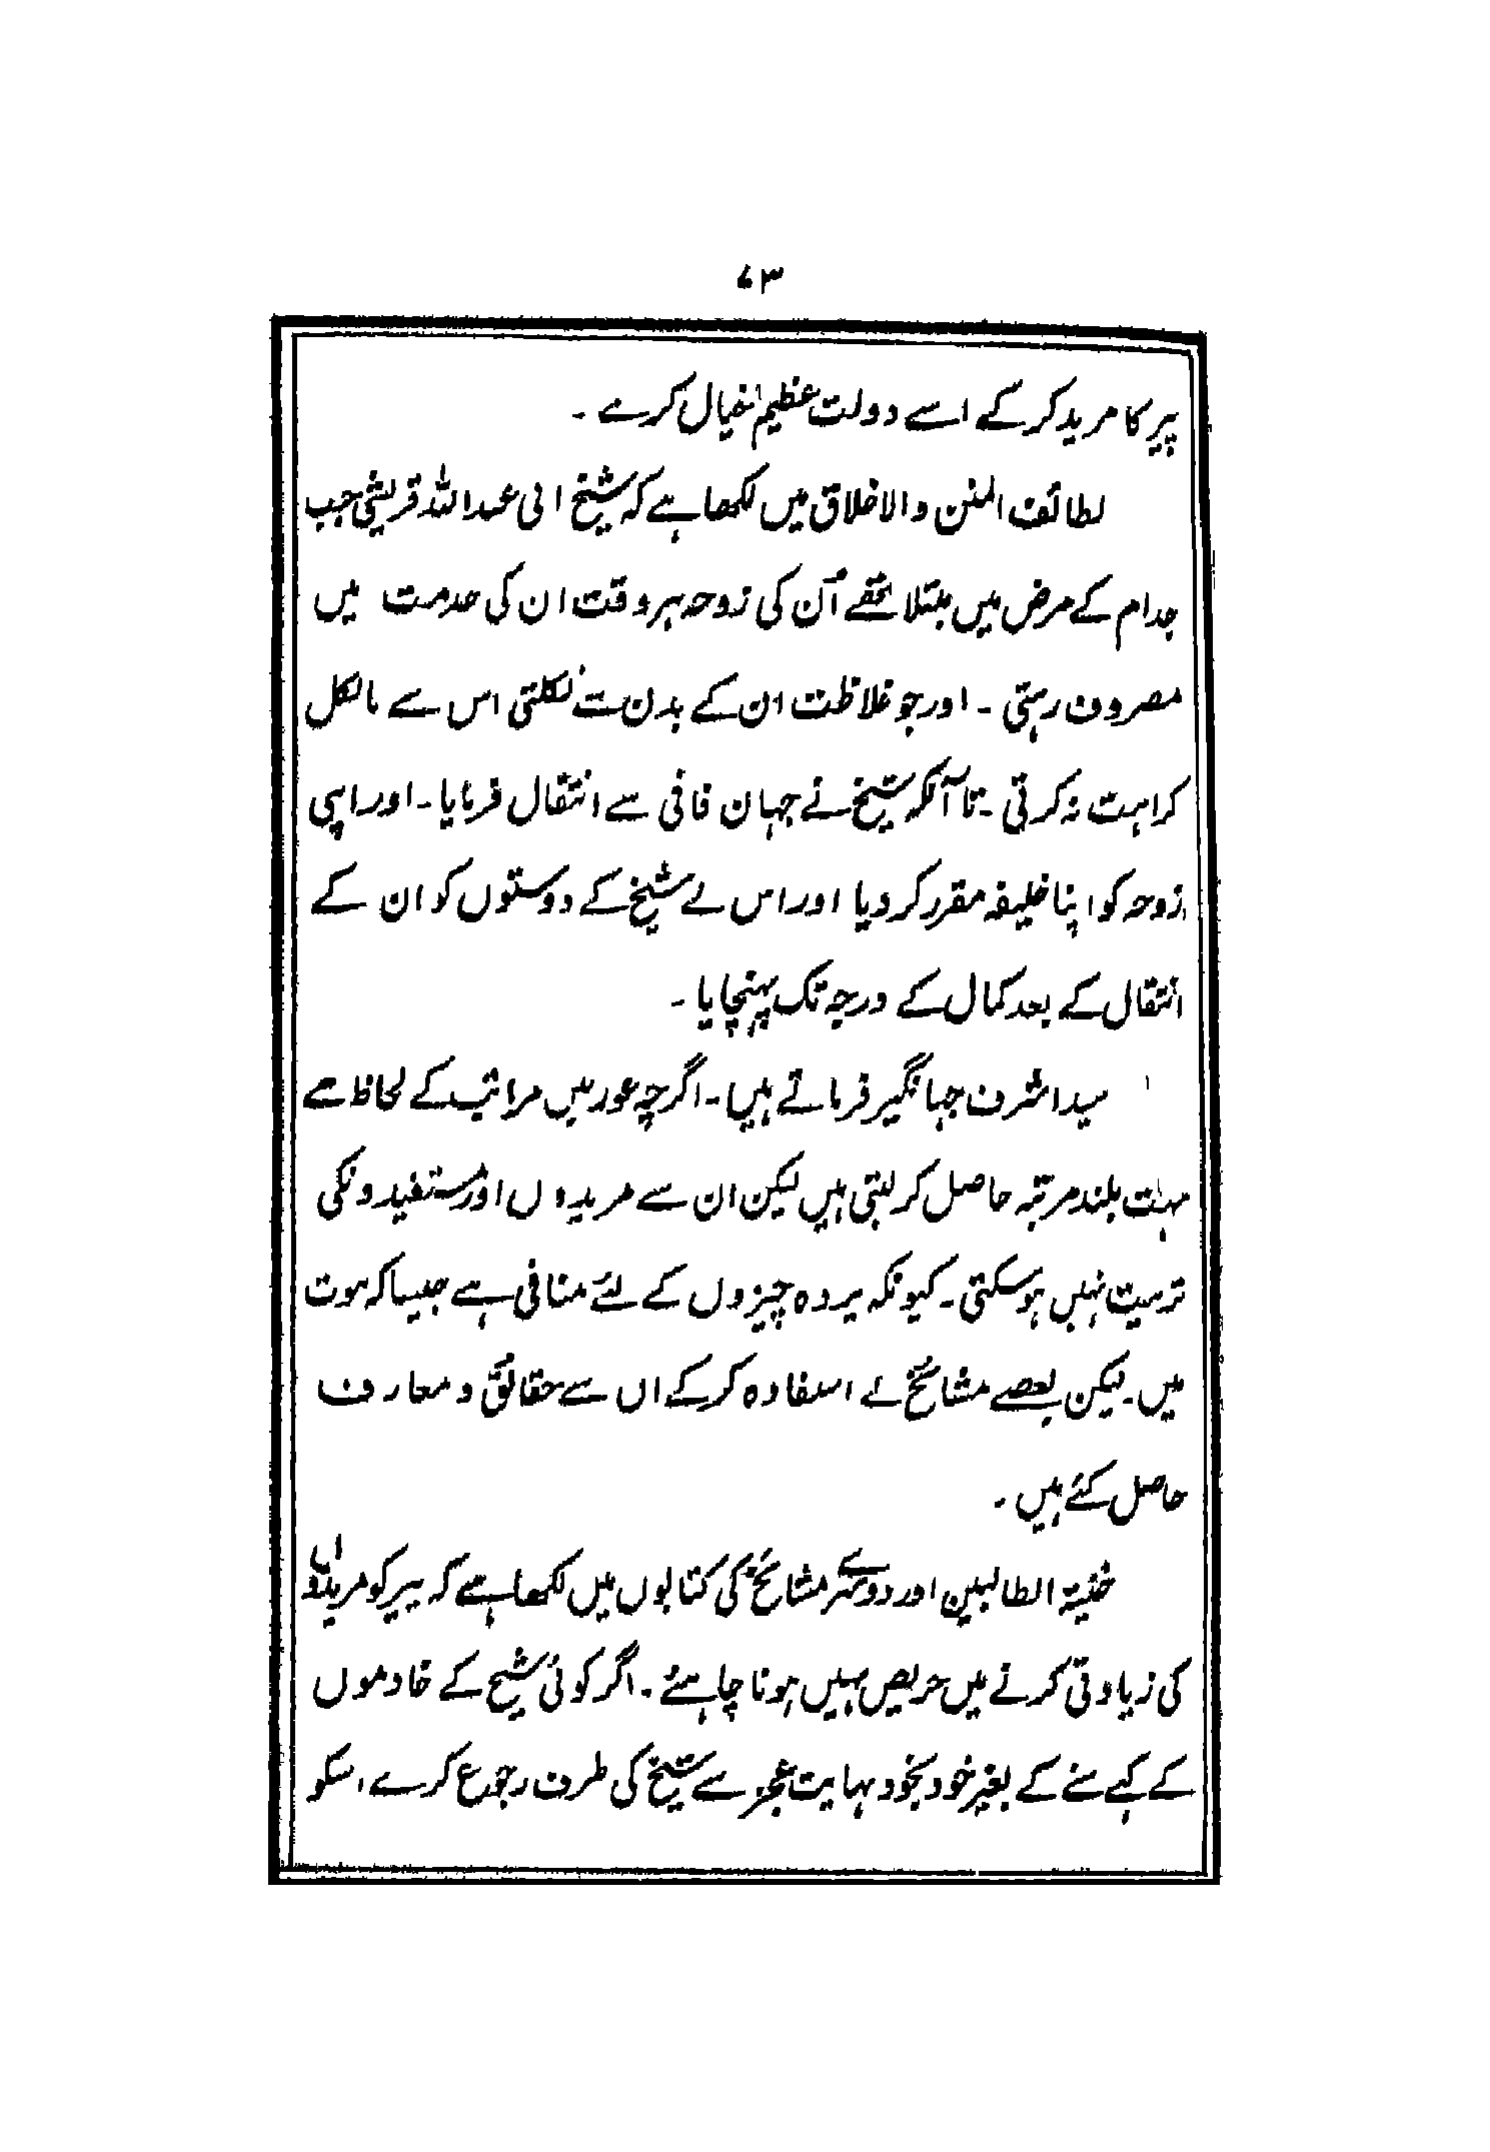 ۷۳
پیر کا مرید کر کے اسے دولت عظیم خیال کرے ۔
لطائف المنن والاخلاق میں لکھا ہے کہ شیخ ابی عبداللہ قریشی جب
جذام کے مرض میں مبتلا تھے اُن کی زوجہ ہر وقت ان کی خدمت میں
مصروف رہتی ۔ اور جو غلاظت ان کے بدن سے نکلتی اس سے بالکل
کراہت نہ کرتی ۔ تا آنکہ شیخ نے جہان فانی سے انتقال فرمایا ۔ اور اپنی
زوجہ کو اپنا خلیفہ مقرر کر دیا اور اس نے شیخ کے دوستوں کو ان کے
انتقال کے بعد کمال کے درجہ تک پہنچایا ۔
سید اشرف جہانگیر فرماتے ہیں ۔ اگرچہ عورتیں مراتب کے لحاظ سے
بہت بلند مرتبہ حاصل کر لیتی ہیں لیکن ان سے مریدوں اور مستفیدونکی
تربیت نہیں ہو سکتی ۔ کیونکہ پردہ چیزوں کے لئے منافی ہے جیسا کہ موت
میں ۔ لیکن بعضے مشائخ نے استفادہ کر کے ان سے حقائق و معارف
حاصل کئے ہیں ۔
غنیۃ الطالبین اور دوسرے مشائخ کی کتابوں میں لکھا ہے کہ پیر کو مریدوں
کی زیادتی کرنے میں حریص نہیں ہونا چاہئے ۔ اگر کوئی شیخ کے خادموں
کے کہے سنے کے بغیر خود بخود نہایت عجز سے شیخ کی طرف رجوع کرے ، اسکو